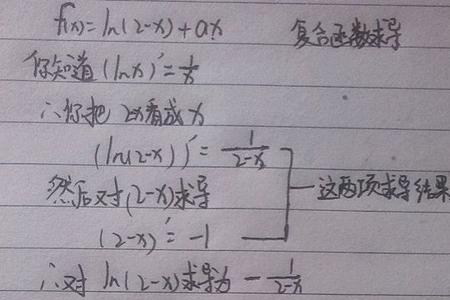 f(x)=ln(2-x)+ax 复合函数求导
你知道(lnx)′=1/x
∴你把 2-x看成x
(ln(2-x))′=1/(2-x)
然后对(2-x)求导
这两项求导结果
(2-x)′=-1
∴对 ln(2-x)求导为 -1/(2-x)